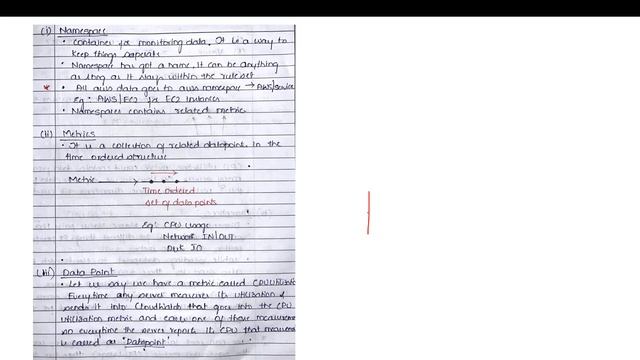 (i) Namespace
• container for monitoring data. It is a way to
keep things seperate
• Namespace has got a name, it can be anything
as long as it stays within the ruleset
* • All aws data goes to aws namespace → AWS/service
Eg: AWS/EC2 for EC2 instance
• Namespaces contains related metric
(ii) Metrics
• It is a collection of related datapoint in the
time ordered structure
Metric
Time ordered
set of data points
Eg: CPU usage
Network IN/OUT
Disk IO
(iii) Data Point
• Let us say we have a metric called CPUUtilization
Everytime any server measures its utilisation &
sends it into CloudWatch that goes into the CPU
utilisation metric and each one of those measurement
so everytime the server reports its CPU that measure
is called as "Datapoint"